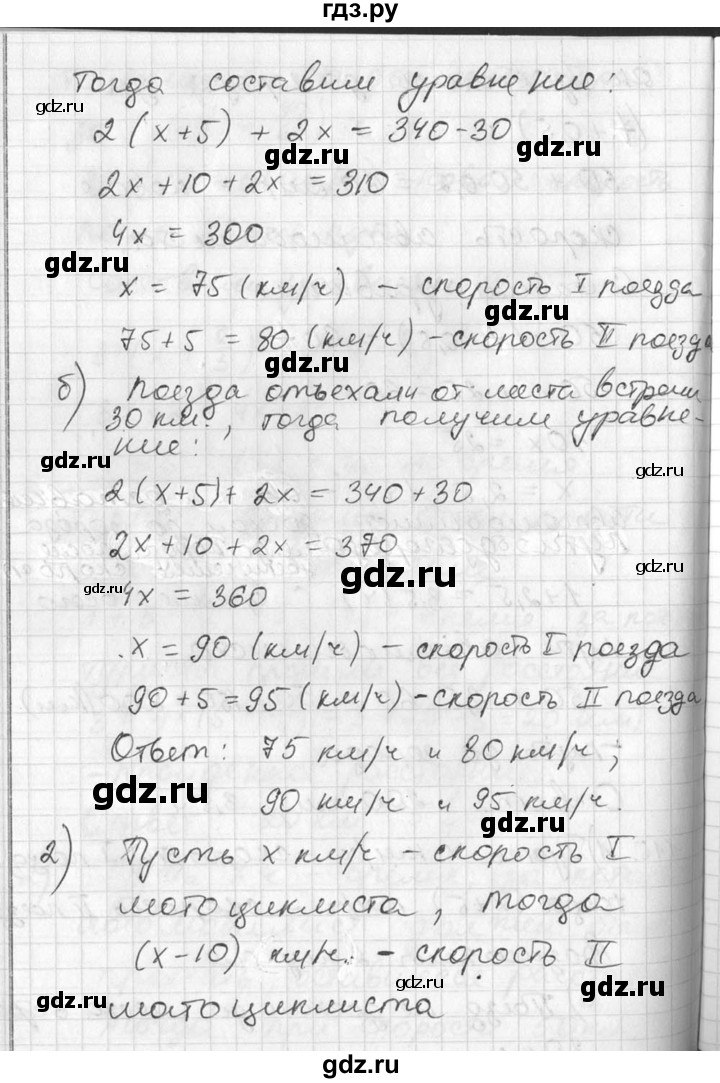 гдз.ру
Тогда составим уравнение:
gdz.ru
2(x+5) + 2x = 340-30
gdz.ru
2x+10+2x = 310
gdz.ru
4x = 300
gdz.ru
x = 75 (км/ч) – скорость I поезда
gdz.ru
75+5 = 80 (км/ч) – скорость II поезда
gdz.ru
б) поезда отъехали от места встречи
30 км, тогда получим уравне-
ние:
gdz.ru
gdz.ru
2(x+5)+2x = 340+30
2x+10+2x = 370
gdz.ru
gdz.ru
gdz.ru
4x = 360
x = 90 (км/ч) – скорость I поезда
gdz.ru
90+5=95 (км/ч) – скорость II поезда
Ответ: 75 км/ч и 80 км/ч;
gdz.ru
90 км/ч и 95 км/ч.
gdz.ru
2) Пусть x км/ч – скорость I
мотоциклиста, тогда
gdz.ru
(x-10) км/ч. – скорость II
gdz.ru
gdz.ru
gdz.ru
мотоциклиста
gdz.ru